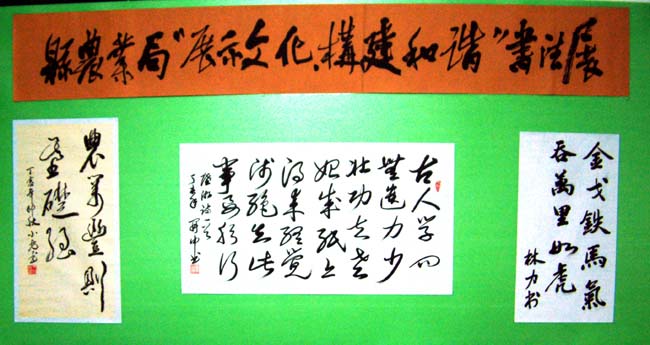 縣農業局"展示文化、構建和谐"書法展
農業豐則
基礎强
丁亥年仲秋小亮书
古人学问
無遺力少
壮功夫老
始成纸上
得来终觉
浅绝知此
事要躬行
陸游诗一首
丁亥年
金戈鉄馬氣
吞萬里如虎
林力书